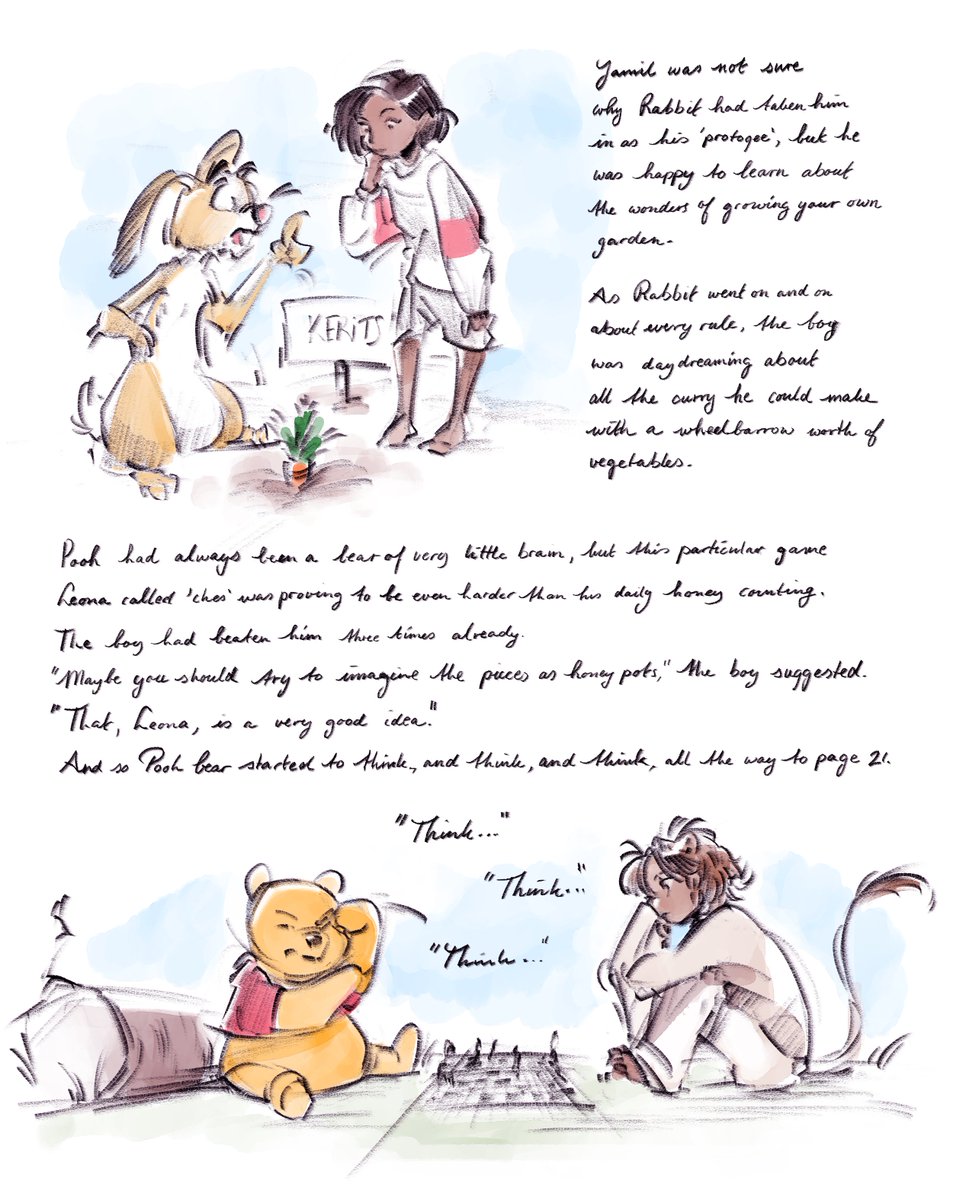 Jamil was not sure
why Rabbit had taken him
in as his 'protogee', but he
was happy to learn about
the wonders of growing your own
garden.
As Rabbit went on and on
about every rule, the boy
was daydreaming about
all the curry he could make
with a wheelbarrow worth of
vegetables.
KERITS
Pooh had always been a bear of very little brain, but this particular game
Leona called 'ches' was proving to be even harder than his daily honey counting.
The boy had beaten him three times already.
"Maybe you should try to imagine the pieces as honey pots," the boy suggested.
"That, Leona, is a very good idea."
And so Pooh bear started to think, and think, and think, all the way to page 21.
"Think..."
"Think..."
"Think..."